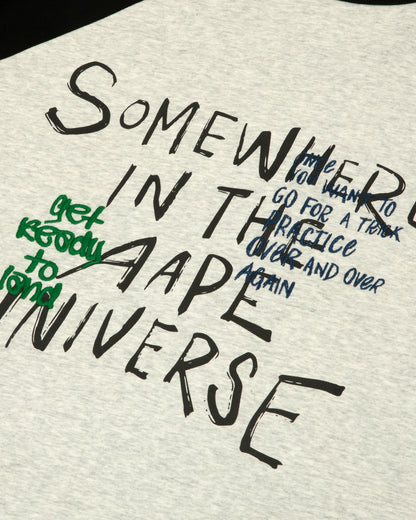 SOMEWHERE
IN THE
AAPE
UNIVERSE
get
Ready
to
land
YOU WANT TO
GO FOR A TRICK
PRACTICE
OVER AND OVER
AGAIN